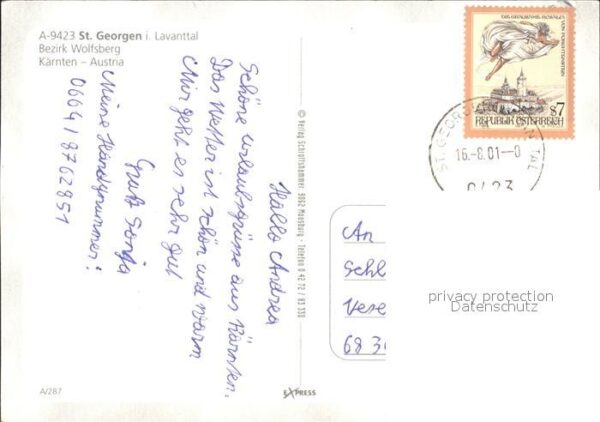 A-9423 St. Georgen i. Lavanttal
Bezirk Wolfsberg
Kärnten – Austria
Hallo Andrea
Schöne Urlaubsgrüsse aus Kärnten.
Das Wetter ist schön und warm
Mir geht es sehr gut
Gruß Sonja
Meine Handynummer:
0664/8762851
© Verlag Schlofshammer 9062 Moosburg - Telefon 0 42 72 / 83 330
DIE GRAUSAME ROSALIE
VON FORCHTENSTEIN
S7
REPUBLIK ÖSTERREICH
ST. GEORGEN
16.-8.01--0
9423
An
Schl
Vese
68 30
privacy protection
Datenschutz
A/287
EXPRESS